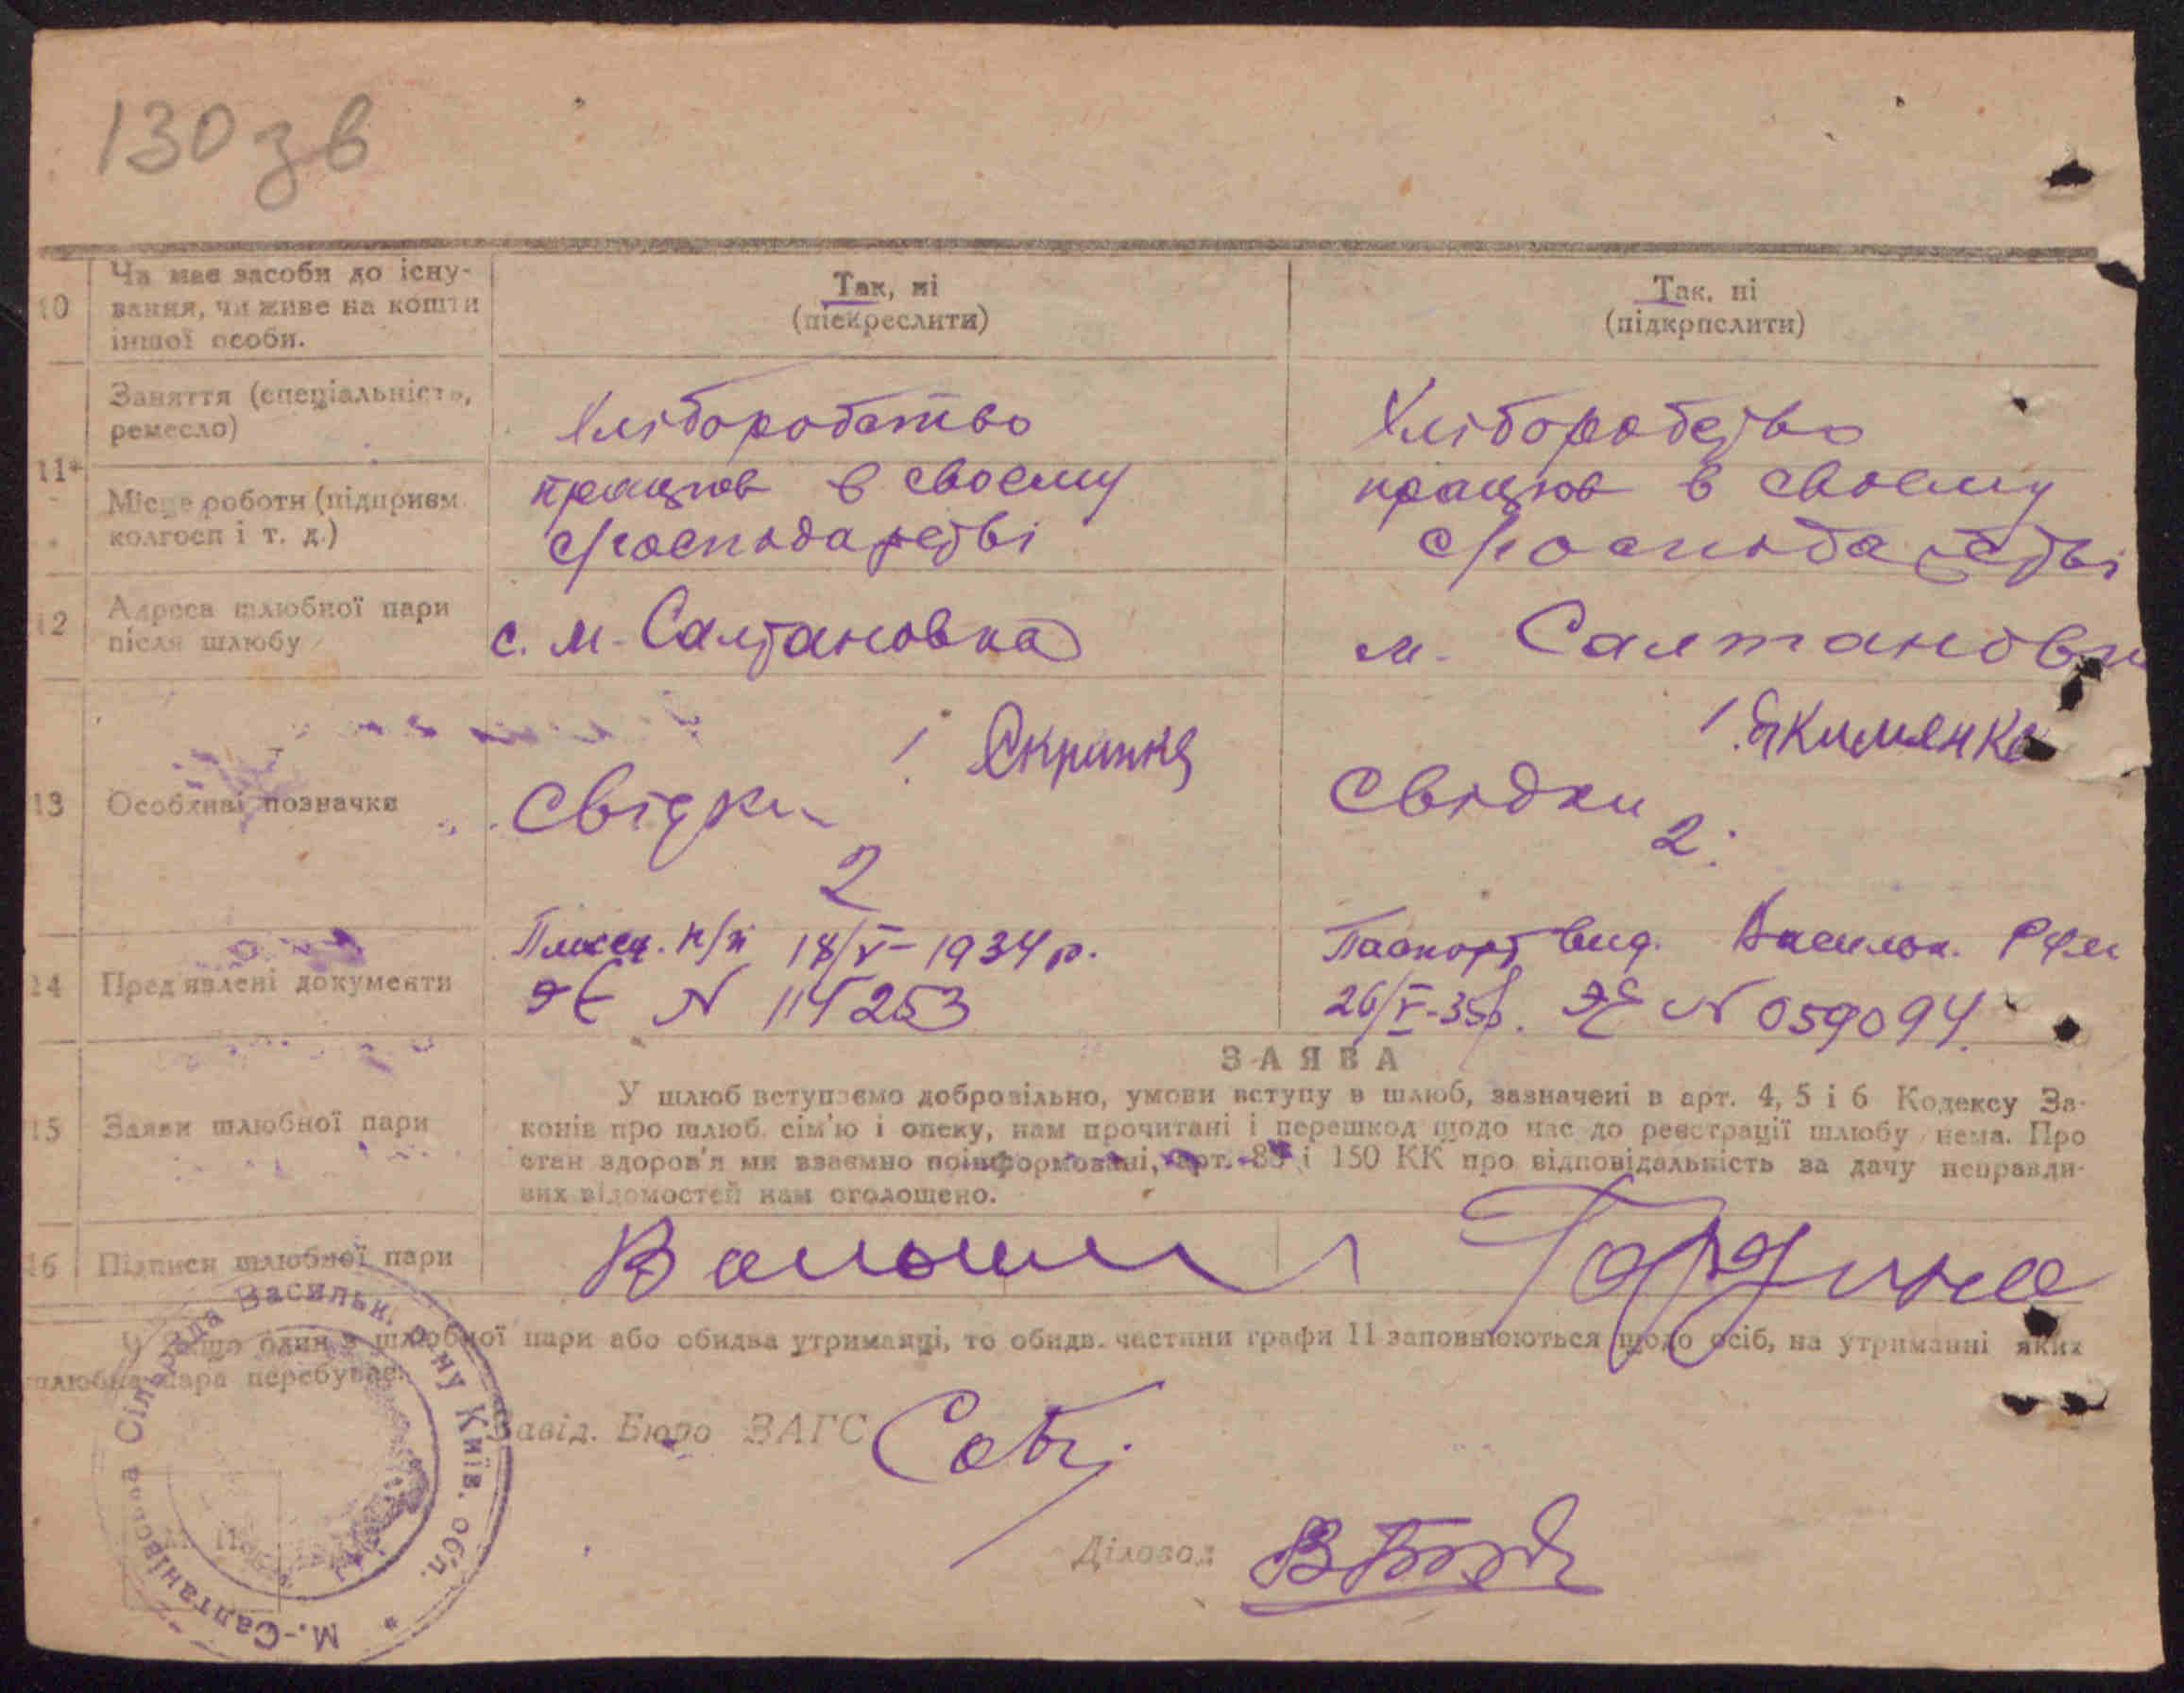 130 зв
10 Ча має засоби до існу-
вання, чи живе на кошти
іншої особи.
Так, ні
(підкреслити)
Так, ні
(підкрпслити)
11* Заняття (спеціальність,
ремесло)
Хліборобство
Хліборобство
Місце роботи (підприєм.
колгосп і т. д.)
працює в своєму
господарстві
працює в своєму
господарстві
12 Адреса шлюбної пари
після шлюбу
с. М-Салтановка
м. Салтановк
13 Особливі позначки
Свідки
1
2
Свідки
1. Якименко
2.
14 Пред'явлені документи
18/V-1934 р.
N 114253
Паспорт вид. Васильк. РФМ
26/V-35р. N 059094.
15 Заяви шлюбної пари
ЗАЯВА
У шлюб вступаємо добровільно, умови вступу в шлюб, зазначені в арт. 4, 5 і 6 Кодексу За-
конів про шлюб, сім'ю і опеку, нам прочитані і перешкод щодо нас до реєстрації шлюбу нема. Про
стан здоров'я ми взаємно поінформовані, арт. 85 і 150 КК про відповідальність за дачу неправди-
вих відомостей нам оголошено.
16 Підписи шлюбної пари
Волошин
Гордина
Якщо один з шлюбної пари або обидва утриманці, то обидв. частини графи 11 заповнюються щодо осіб, на утриманні яких
шлюбна пара перебуває.
Завід. Бюро ЗАГС
Діловод
М.-Салтанівська Сільрада Васильк. р-ну Київ. обл.